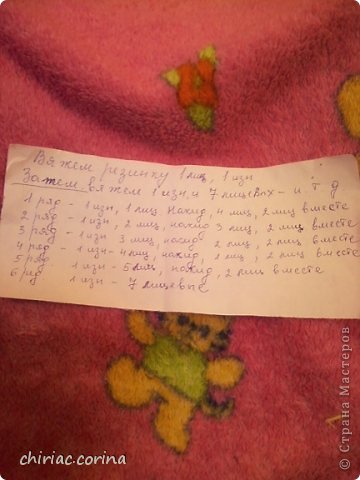 Вяжем резинку 1 лиц, 1 изн
Затем вяжем 1 изн и 7 лицевых - и. т д
1 ряд - 1 изн, 1 лиц накид, 4 лиц, 2 лиц вместе
2 ряд - 1 изн, 2 лиц, накид 3 лиц, 2 лиц вместе
3 ряд - 1 изн 3 лиц, накид 2 лиц, 2 лиц вместе
4 ряд - 1 изн - 4 лиц, накид, 1 лиц, 2 лиц вместе
5 ряд 1 изн - 5 лиц, накид, 2 лиц вместе
6 ряд 1 изн - 7 лицевые
chiriac.corina
© Страна Мастеров